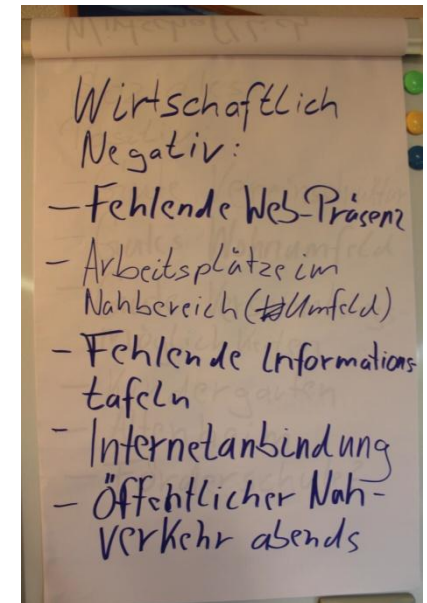 Wirtschaftlich
Negativ:
- Fehlende Web-Präsenz
- Arbeitsplätze im
Nahbereich (Umfeld)
- Fehlende Informations-
tafeln
- Internetanbindung
- Öffentlicher Nah-
verkehr abends